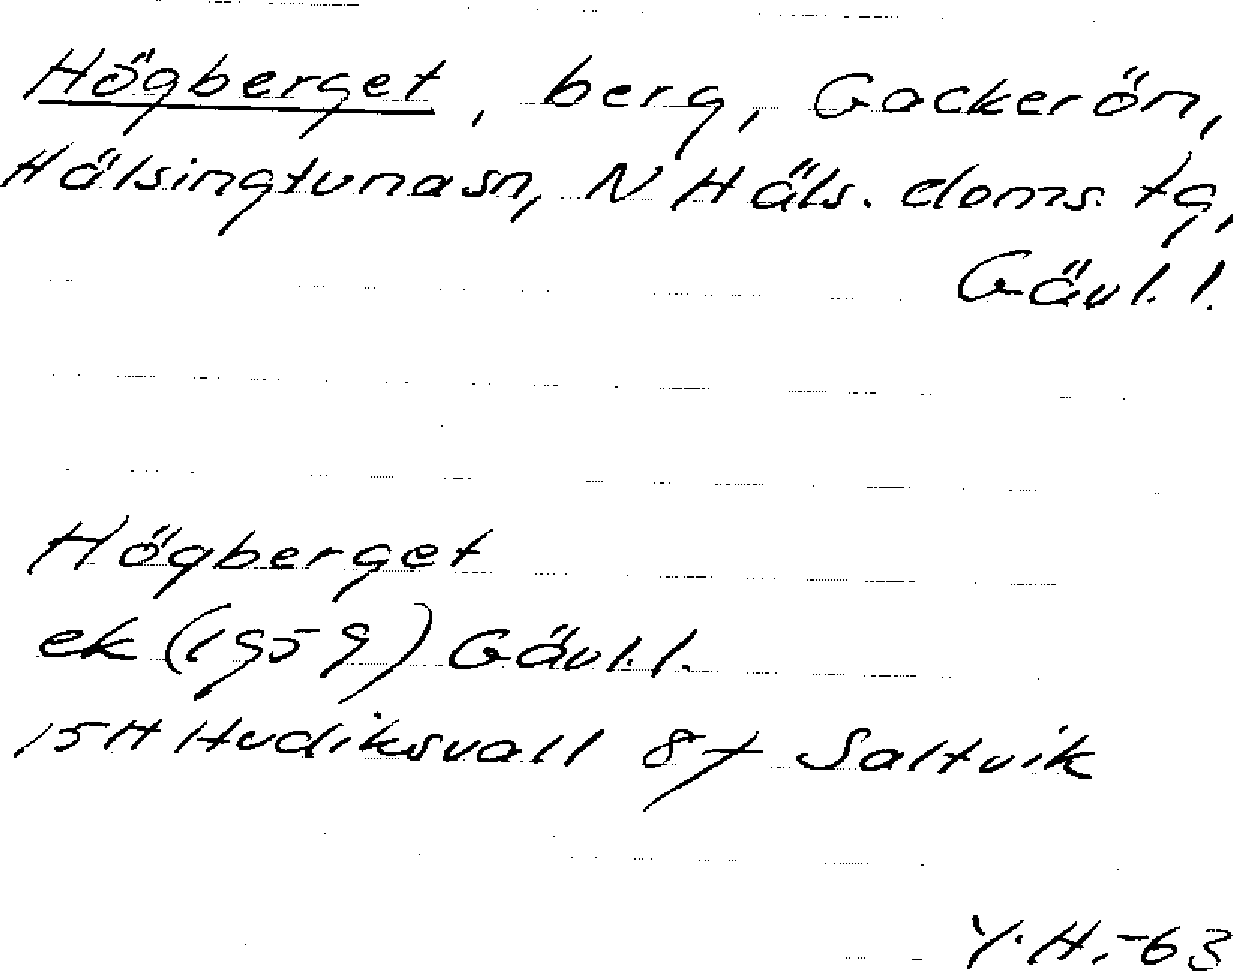 Högberget, berg, Gackerön,
Hälsingtunasn, N Häls. doms. tg,
Gävl. l.
Högberget
ek (1959) Gävl. l.
15H Hudiksvall 8f Saltvik
Y. H. -63